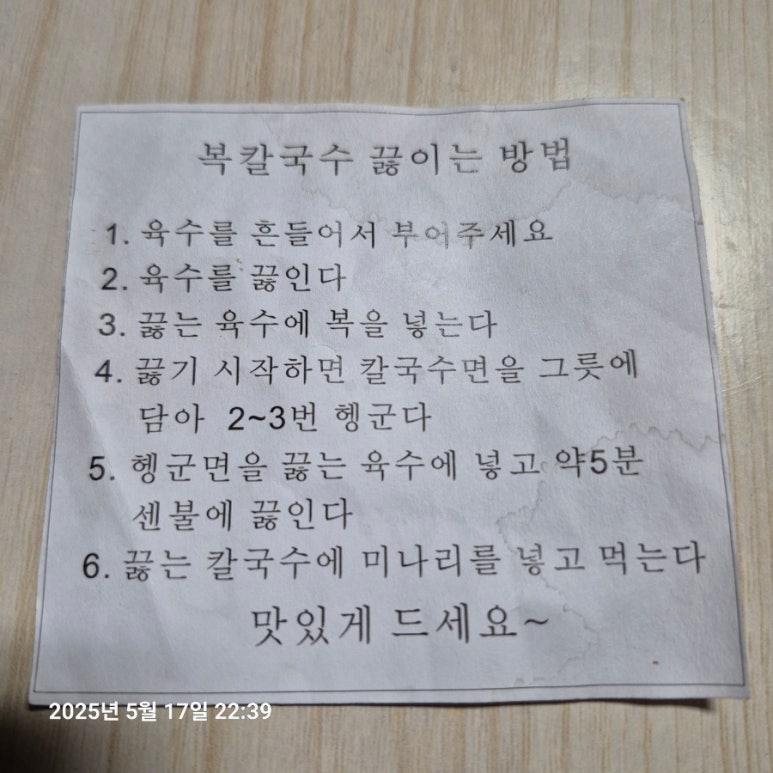 복칼국수 끓이는 방법
1. 육수를 흔들어서 부어주세요
2. 육수를 끓인다
3. 끓는 육수에 복을 넣는다
4. 끓기 시작하면 칼국수면을 그릇에
담아 2~3번 헹군다
5. 헹군면을 끓는 육수에 넣고 약5분
센불에 끓인다
6. 끓는 칼국수에 미나리를 넣고 먹는다
맛있게 드세요~
2025년 5월 17일 22:39